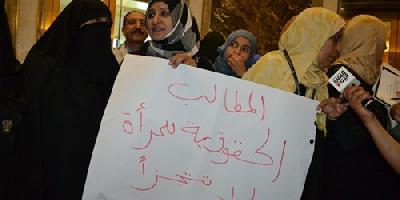 المطالب
الحقوقية للمرأة
تتجزأ